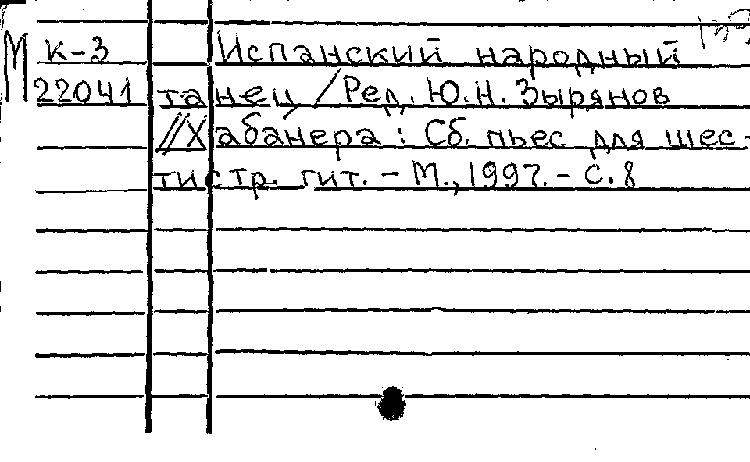 М К-3 Испанский народный
22041 танец / Ред. Ю.Н. Зырянов
// Хабанера : Сб. пьес для шес-
тистр. гит. - М., 1997. - С. 8